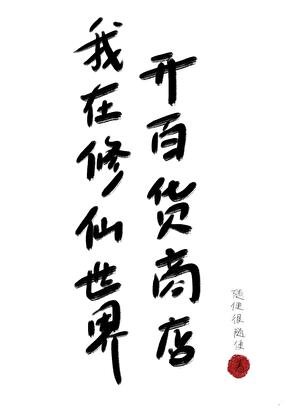 我在修仙世界
开百货商店
随便很随便